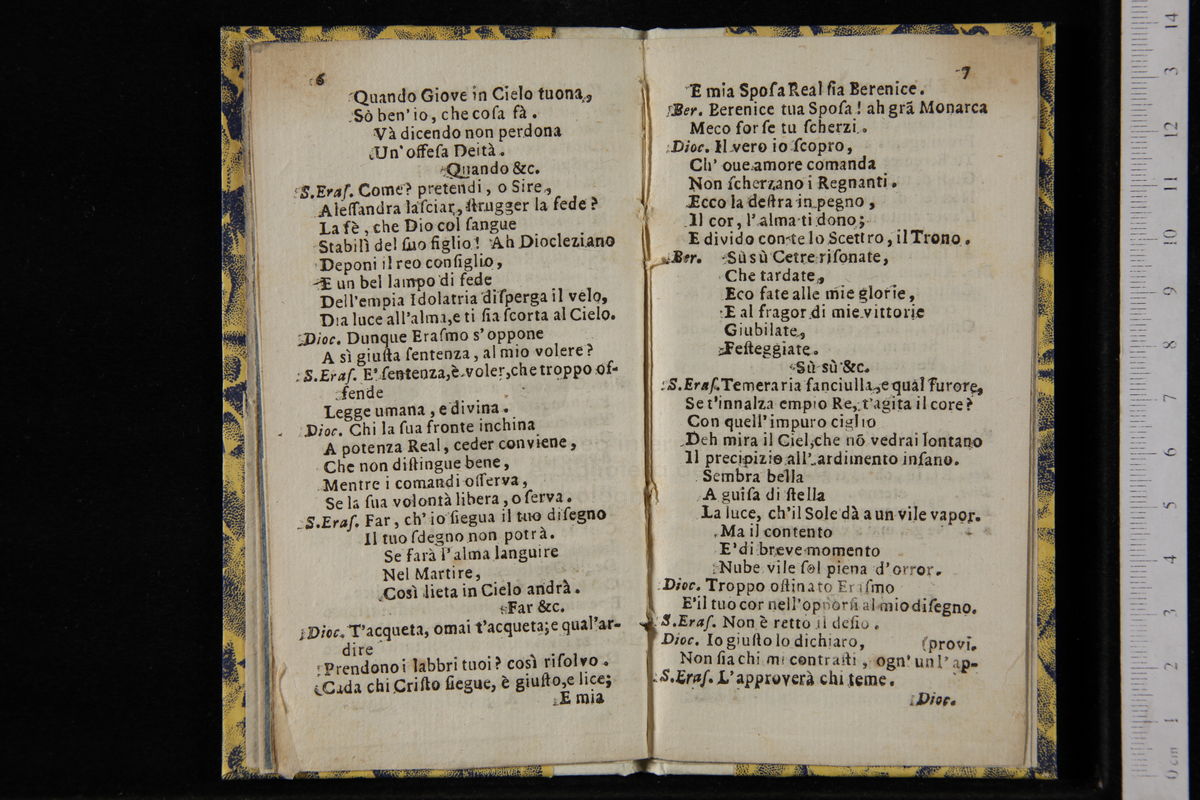 6
Quando Giove in Cielo tuona,
Sò ben' io, che coſa fà.
Và dicendo non perdona
Un' offeſa Deità.
Quando &c.
S.Eraſ. Come? pretendi, o Sire,
Aleſſandra laſciar, ſtrugger la fede?
La fè, che Dio col ſangue
Stabilì del ſuo figlio! Ah Diocleziano
Deponi il reo conſiglio,
E un bel lampo di fede
Dell'empia Idolatria diſperga il velo,
Dia luce all'alma, e ti ſia ſcorta al Cielo.
Dioc. Dunque Eraſmo s' oppone
A sì giuſta ſentenza, al mio volere?
S.Eraſ. E' ſentenza, è voler, che troppo of-
fende
Legge umana, e divina.
Dioc. Chi la ſua fronte inchina
A potenza Real, ceder conviene,
Che non diſtingue bene,
Mentre i comandi oſſerva,
Se la ſua volontà libera, o ſerva.
S.Eraſ. Far, ch' io ſiegua il tuo diſegno
Il tuo ſdegno non potrà.
Se farà l' alma languire
Nel Martire,
Così lieta in Cielo andrà.
Far &c.
Dioc. T'acqueta, omai t'acqueta; e qual'ar-
dire
Prendono i labbri tuoi? così riſolvo.
Cada chi Criſto ſiegue, è giuſto, e lice;
E mia
7
E mia Spoſa Real ſia Berenice.
Ber. Berenice tua Spoſa! ah grã Monarca
Meco forſe tu ſcherzi.
Dioc. Il vero io ſcopro,
Ch' oue amore comanda
Non ſcherzano i Regnanti.
Ecco la deſtra in pegno,
Il cor, l' alma ti dono;
E divido con te lo Scettro, il Trono.
Ber. Sù sù Cetre riſonate,
Che tardate,
Eco fate alle mie glorie,
E al fragor di mie vittorie
Giubilate,
Feſteggiate.
Sù sù &c.
S.Eraſ. Temeraria fanciulla, e qual furore,
Se t'innalza empio Re, t'agita il core?
Con quell' impuro ciglio
Deh mira il Ciel, che nõ vedrai lontano
Il precipizio all' ardimento inſano.
Sembra bella
A guiſa di ſtella
La luce, ch'il Sole dà a un vile vapor.
Ma il contento
E' di breve momento
Nube vile ſol piena d' orror.
Dioc. Troppo oſtinato Eraſmo
E'il tuo cor nell'opporſi al mio diſegno.
S.Eraſ. Non è retto il deſio.
Dioc. Io giuſto lo dichiaro, (provi.
Non ſia chi mi contraſti, ogn' un l' ap-
S.Eraſ. L' approverà chi teme.
Dioc.
0 cm 1 2 3 4 5 6 7 8 9 10 11 12 3 14